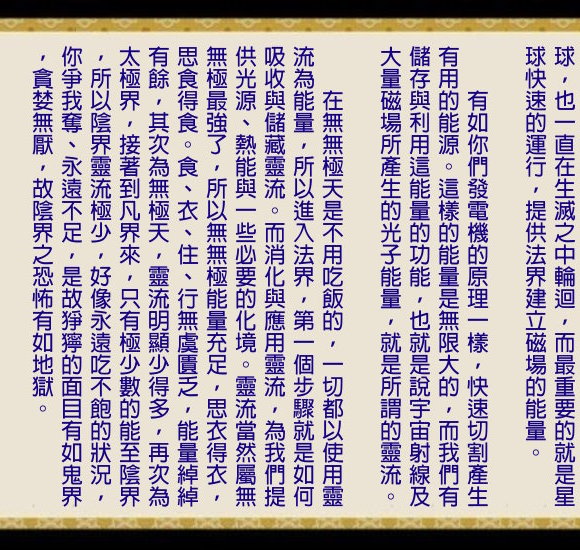 球，也一直在生滅之中輪迴，而最重要的就是星
球快速的運行，提供法界建立磁場的能量。
有如你們發電機的原理一樣，快速切割產生
有用的能源。這樣的能量是無限大的，而我們有
儲存與利用這能量的功能，也就是說宇宙射線及
大量磁場所產生的光子能量，就是所謂的靈流。
在無無極天是不用吃飯的，一切都以使用靈
流為能量，所以進入法界，第一個步驟就是如何
吸收與儲藏靈流。而消化與應用靈流，為我們提
供光源、熱能與一些必要的化境。靈流當然屬無
無極最強了，所以無無極能量充足，思衣得衣，
思食得食。食、衣、住、行無虞匱乏，能量綽綽
有餘，其次為無極天，靈流明顯少得多，再次為
太極界，接著到凡界來，只有極少數的能至陰界
，所以陰界靈流極少，好像永遠吃不飽的狀況，
你爭我奪、永遠不足，是故猙獰的面目有如鬼界
，貪婪無厭，故陰界之恐怖有如地獄。